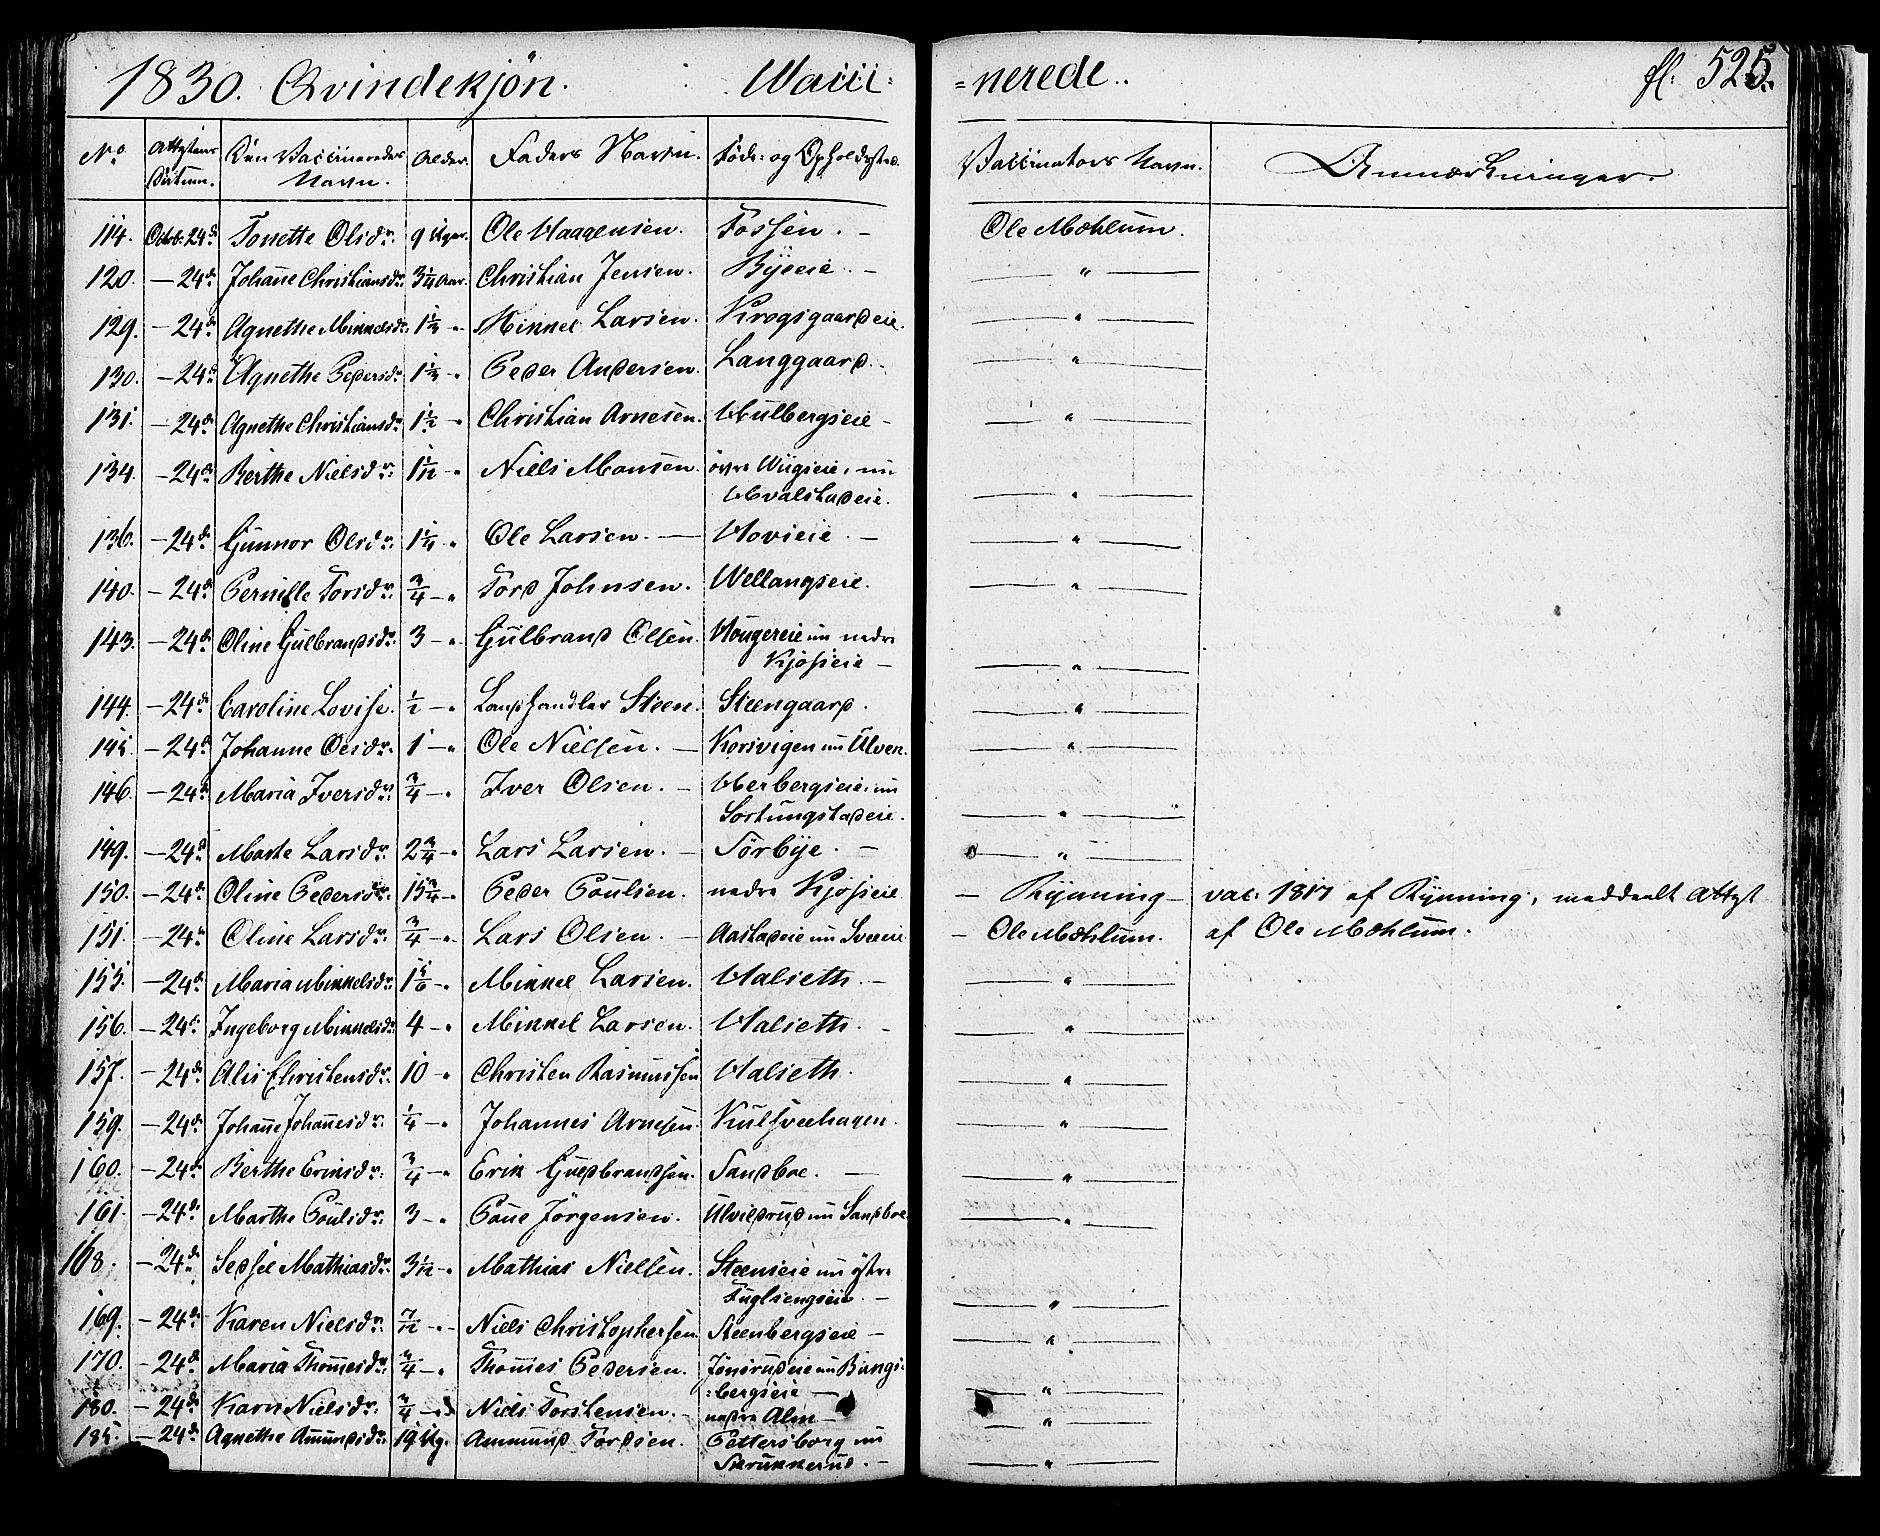 1830. Qvindekjøn. Vacci=
=nerede.. fl. 525.
No Attestens Datum. Den Vaccineredes Navn. Alder. Faders Navn. Føde- og Opholdssted. Vaccinators Navn. Anmærkninger.
114. Octob: 24de Tonette Olsdr: 9 Uger. Ole Haagensen. Fossen. – Ole Mæhlum.
120. – 24de Johanne Christiansdr: 3 1/4 Aar. Christian Jensen. Byeeie. – — " —
129. – 24de Agnethe Minkelsdr: 1 1/2 – " Minkel Larsen. Krogsgaardeie. — " —
130. – 24de Agnethe Pedersdr: – " Peder Andersen. Langgaard. — " —
131. – 24de Agnethe Christiansdr: 1 1/2 – " Christian Arnesen. Hulbergseie – — " —
134. – 24de Berthe Nielsdr: 1 1/12 – " Niels Monsen. øvre Wiigseie, nu
Hvalstadeie. — " —
136. – 24de Gunnor Olsdr: 1 1/4 – " Ole Larsen. — Hovieie. – — " —
140. – 24de Pernille Torsdr: 3/4 – " Tord Johnsen. Wellangseie. — " —
143. – 24de Oline Gulbrandsdr: 3 – " Gulbrand Olsen. Hougereie nu nedre
Kjoseie – — " —
144. – 24de Caroline Lovise. 1/2 – " Landhandler Steen. Steengaard. — " —
145. – 24de Johanne Olsdr: 1 – " Ole Nielsen. – Korsvigen nu Ulven. — " —
146. – 24de Maria Iversdr: 3/4 – " Iver Olsen. – Herbergseie, nu
Sortungstadeie. — " —
149. – 24de Marte Larsdr: 2 3/4 – " Lars Larsen. – Sørbye. – — " —
150. – 24de Oline Pedersdr: 15 3/4 – " Peder Poulsen. nedre Kjoseie – Rynning – vac: 1817 af Rynning, meddeelt Attest
151. – 24de Oline Larsdr: 3/4 – " Lars Olsen. – Aastadeie nu Sveeie – Ole Mæhlum. af Ole Mæhlum.
155. – 24de Maria Minkelsdr: 1 5/6 – " Minkel Larsen. Valseth. – — " —
156. – 24de Ingeborg Minkelsdr: 4 – " Minkel Larsen. Valseth. – — " —
157. – 24de Alis Christensdr: 10 – " Christen Rasmussen Valseth. — " —
159. – 24de Johanne Johannesdr: 1/4 – " Johannes Arnesen. Kulsveehagen. — " —
160. – 24de Berthe Eriksdr: 3/4 – " Erik Guldbrandsen. Sandboe. — — " —
161. – 24de Marthe Poulsdr: 3 – " Poue Jörgensen. Ulvildrud nu Sandboe — " —
168. – 24de Sedsel Mathiasdr: 3 1/12 – " Mathias Nielsen. Steenseie nu østre
Fuglsengseie. – — " —
169. – 24de Karen Nielsdr: 7/12 – " – Niels Christophersen. Steenbergseie – — " —
170. – 24de Maria Thomesdr: 3/4 – " Thomes Pedersen. Jonsrudeie nu Bangs=
=bergseie – — " —
180. – 24de Karn Nielsdr: 3/4 – " Niels Torstensen. – nedre Alm – — " —
185. – 24de Agnethe Amundsdr: 19 Ug. Ammund Tordsen. Pettersborg nu
Skrukkerud. – — " —